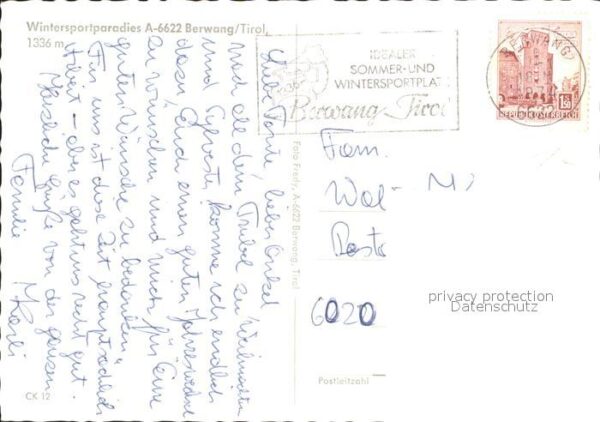 Wintersportparadies A-6622 Berwang/Tirol,
1336 m
IDEALER
SOMMER- UND
WINTERSPORTPLATZ
Berwang Tirol
BERWANG
6622
REPUBLIK ÖSTERREICH
1.50
Liebe Tante, lieber Onkel
nach all dem Trubel zu Weihnachten
und Sylvester, komme ich endlich
dazu, Euch einen guten Jahreswechsel
zu wünschen und mich für Eure
guten Wünsche zu bedanken.
Für uns ist diese Zeit hauptsächlich
Arbeit - aber es geht uns recht gut.
Herzliche Grüße von der ganzen
Familie
Foto Frentz, A-6622 Berwang, Tirol
Fam.
6020
privacy protection
Datenschutz
Postleitzahl
CK 12